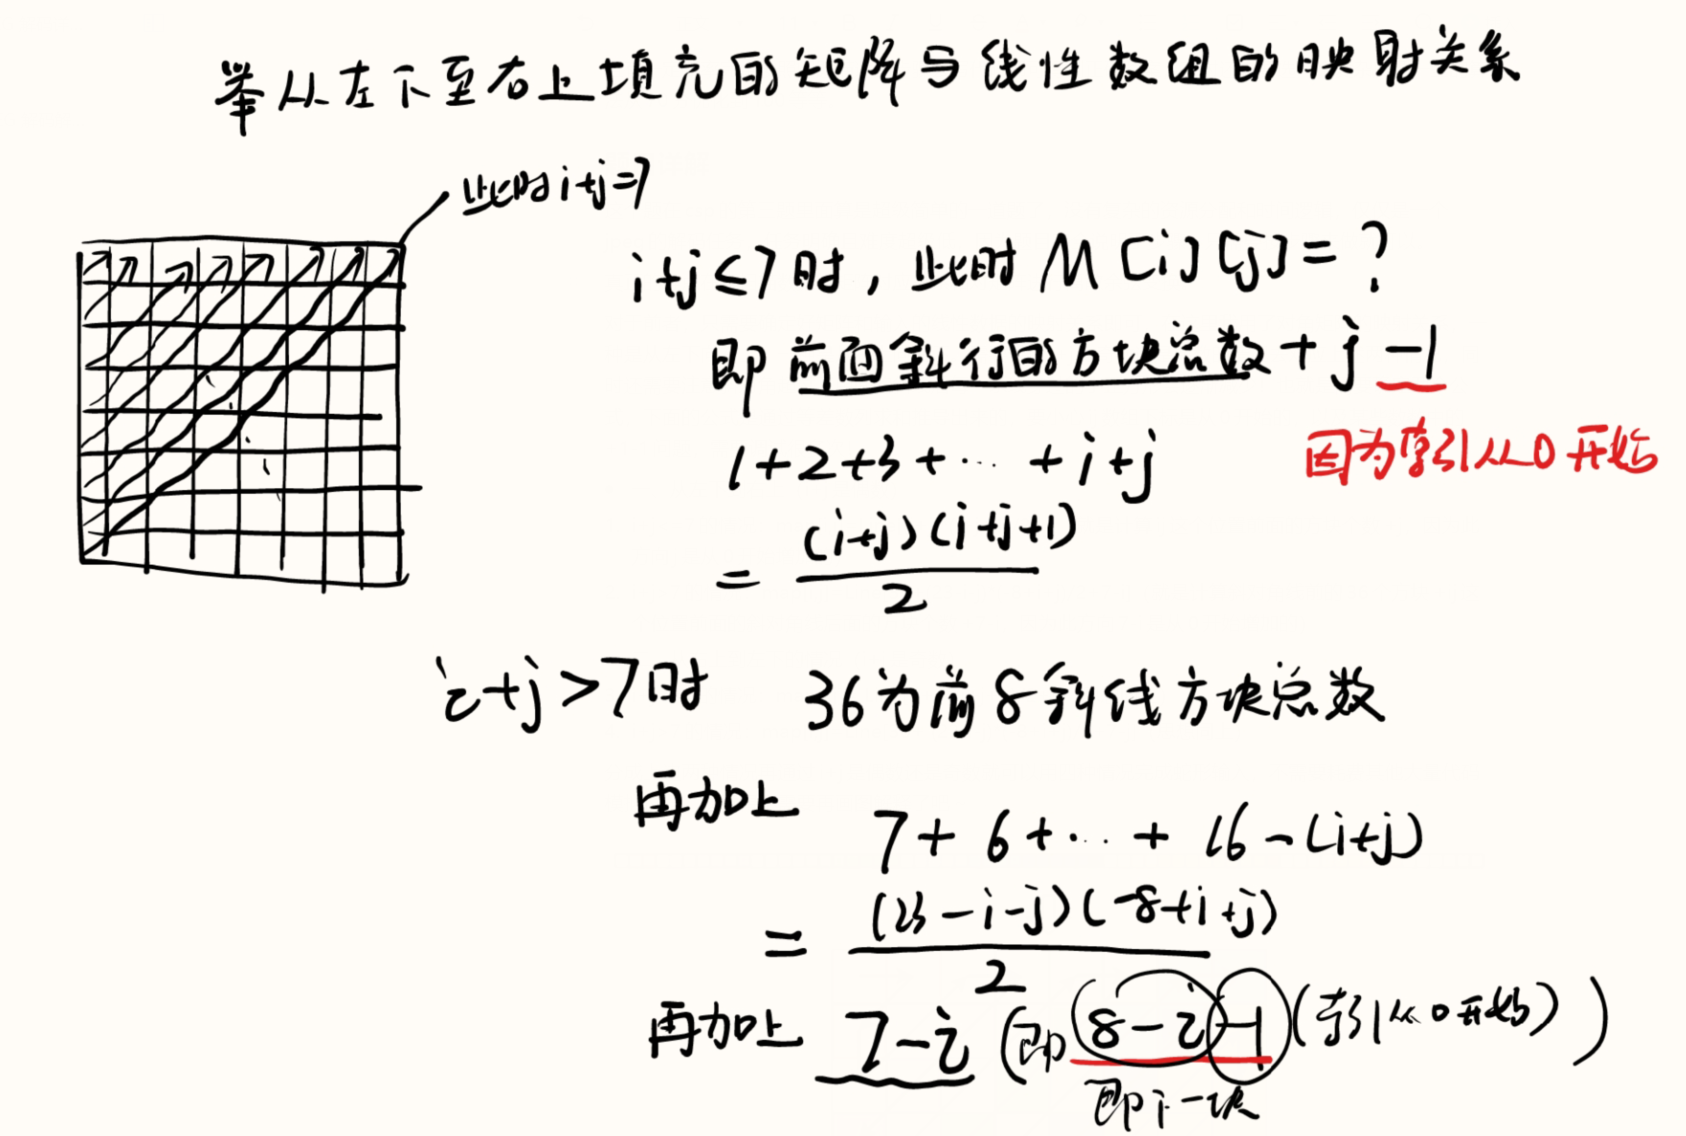 举从左下至右上填充的矩阵与线性数组的映射关系
此时i+j=7
i+j≤7时，此时M[i][j]=?
即前面斜行的方块总数+j-1
因为索引从0开始
1+2+3+…+i+j
=(i+j)(i+j+1)/2
i+j>7时 36为前8斜线方块总数
再加上 7+6+…+16-(i+j)
=(23-i-j)(-8+i+j)/2
再加上 7-i (即(8-i)-1(索引从0开始))
即下一块